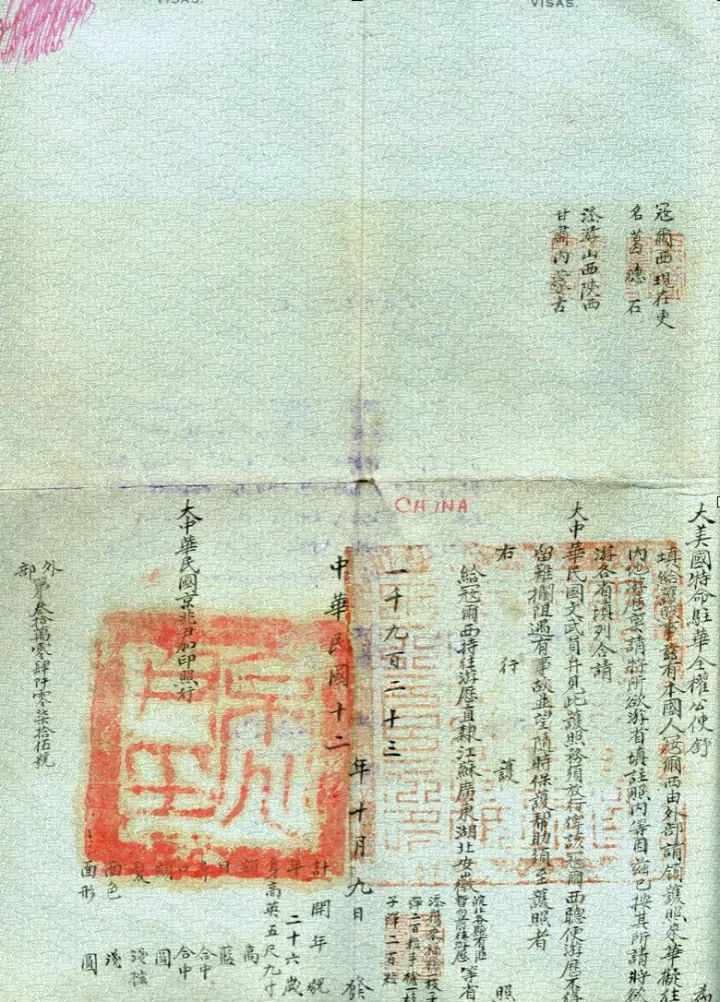 VISAS.
VISAS.
寇爾西現在更
名葛德石
添游山西陝西
甘肅內蒙古
CHINA
大美國特命駐華全權公使舒 為
填給護照事茲有本國人寇爾西由外部請領護照來華擬往
內地游歷要請將所欲游省填註照內等因茲已按其所請將欲
游各省填列合請
大中華民國文武員弁見此護照務須放行俾該寇爾西聽便游歷不得
留難攔阻遇有事故並望隨時保護幫助須至護照者
右行護照
給寇爾西持往游歷直隸江蘇廣東湖北安徽
等省
子彈二百粒
一千九百二十三
中華民國十二年十月九日發
計開年貌
年二十六歲
身高英五尺九寸
額高
目藍
鼻合中
口合中
頦圓
髮淺棕
面色淺
面形圓
大中華民國京兆尹加印照行
外部第叁拾萬零肆仟零柒拾伍號